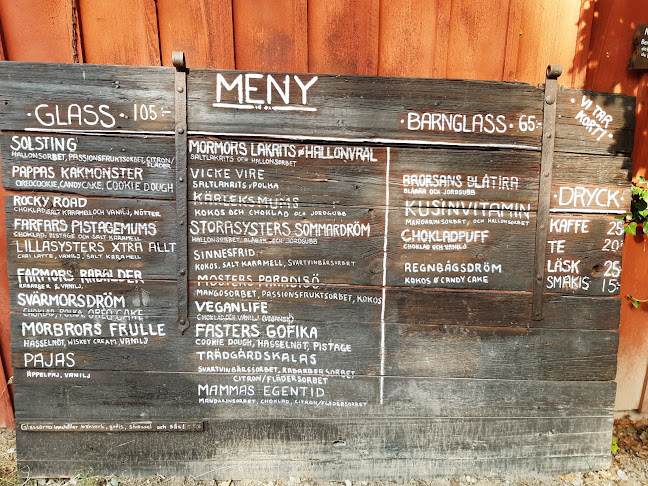 MENY
GLASS 105:-
SOLSTING
HALLONSORBET, PASSIONSFRUKTSORBET, CITRON/
FLÄDER
PAPPAS KAKMONSTER
OREOCOOKIE, CANDY CAKE, COOKIE DOUGH
ROCKY ROAD
CHOKLAD, SALT KARAMELL OCH VANILJ, NÖTTER
FARFARS PISTAGEMUMS
CHOKLAD, PISTAGE OCH SALT KARAMELL
LILLASYSTERS XTRA ALLT
CHAI LATTE, VANILJ, SALT KARAMELL
FARMORS RABALDER
RABARBER & VANILJ
SVÄRMORSDRÖM
CHOKLAD, POLKA, OREO CAKE
MORBRORS FRULLE
HASSELNÖT, WISKEY CREAM, VANILJ
PAJAS
ÄPPELPAJ, VANILJ
MORMORS LAKRITS & HALLONVRÅL
SALTLAKRITS OCH HALLONSORBET
VICKE VIRE
SALTLAKRITS & POLKA
KÄRLEKSMUMS
KOKOS OCH CHOKLAD OCH JORDGUBB
STORASYSTERS SOMMARDRÖM
HALLONSORBET, BLÅBÄR OCH JORDGUBB
SINNESFRID
KOKOS, SALT KARAMELL, SVARTVINBÄRSSORBET
MOSTERS PARADISÖ
MANGOSORBET, PASSIONSFRUKTSORBET, KOKOS
VEGANLIFE
CHOKLAD OCH VANILJ (VEGANSK)
FASTERS GOFIKA
COOKIE DOUGH, HASSELNÖT, PISTAGE
TRÄDGÅRDSKALAS
SVARTVINBÄRSSORBET, RABARBER SORBET
CITRON/FLÄDERSORBET
MAMMAS EGENTID
MANDARINSORBET, CHOKLAD, CITRON/FLÄDERSORBET
BARNGLASS 65:-
BRORSANS BLÅTIRA
BLÅBÄR OCH JORDGUBB
KUSINVITAMIN
MANDARINSORBET, OCH HALLONSORBET
CHOKLADPUFF
CHOKLAD OCH VANILJ
REGNBÅGSDRÖM
KOKOS & CANDY CAKE
VI TAR
KORT!
DRYCK
KAFFE 25
TE 20:
LÄSK 25
SMAKIS 15:-